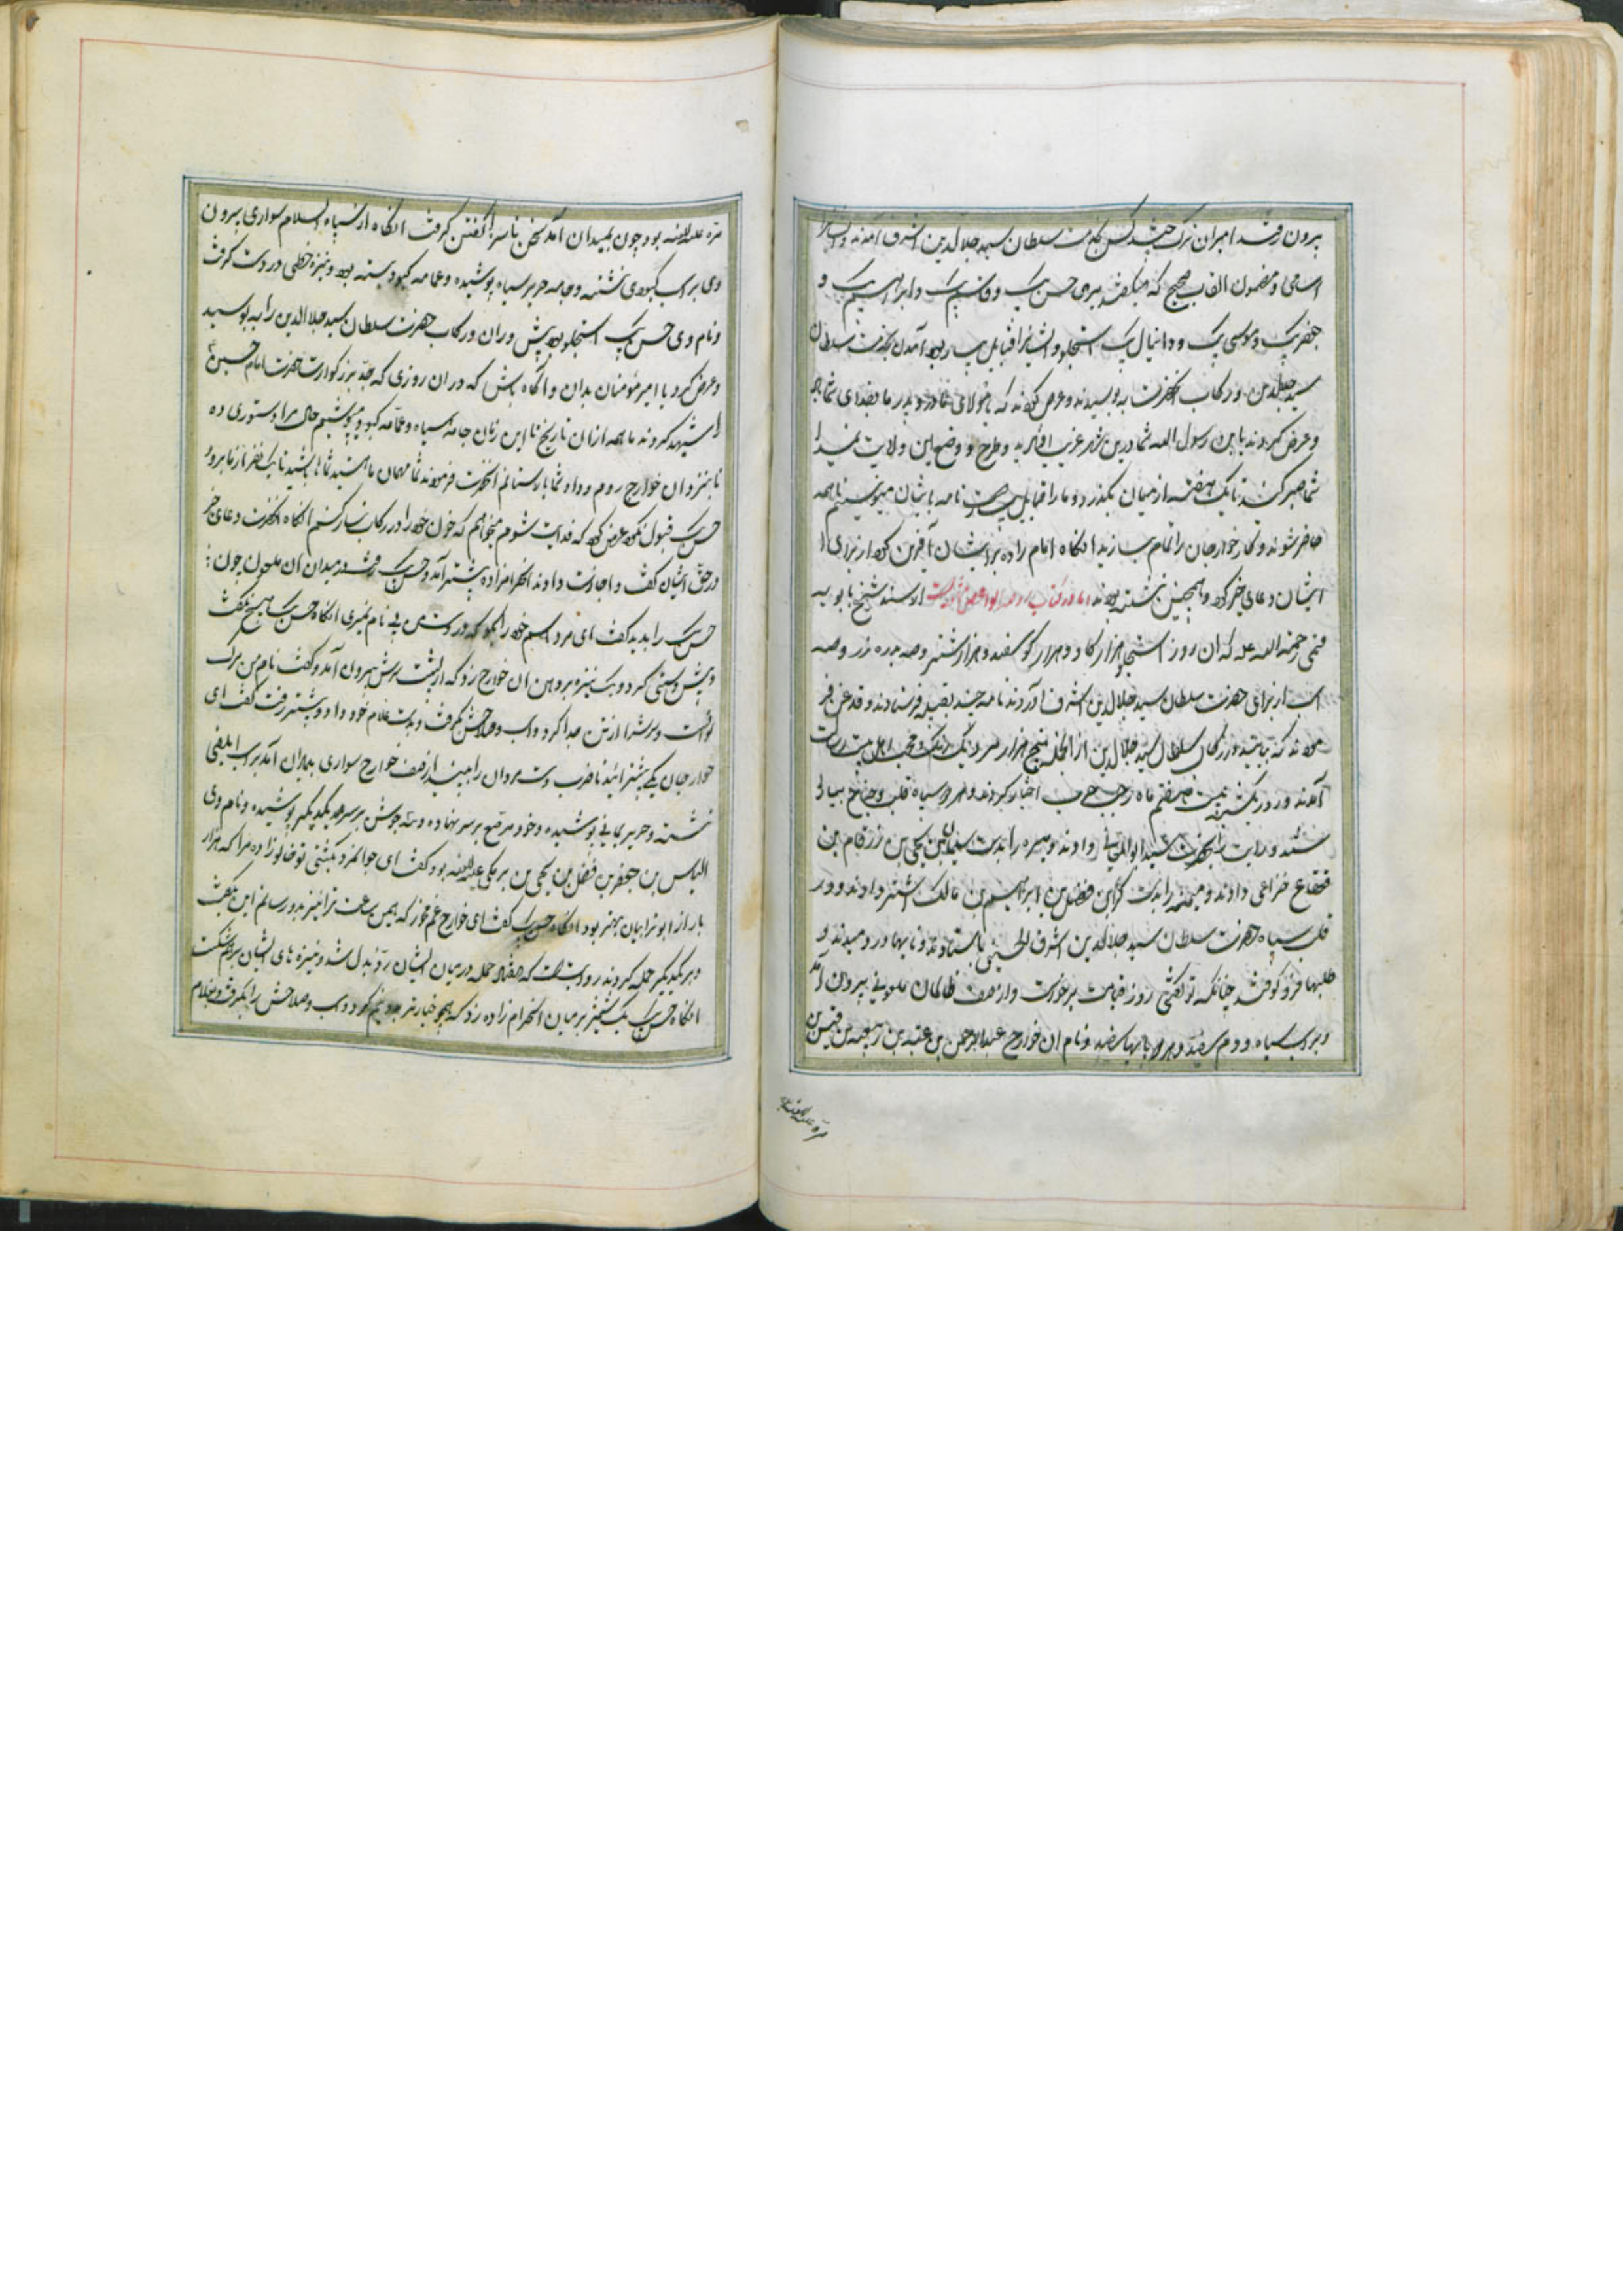 بیرون رفتند امیران ترک چند کس بخدمت سلطان سید جلال‌الدین اشرف آمدند و ایشانرا
اسامی و مضمون القاب صحیح که میگفتند پیری حسن بیک و قاسم بیک و ابراهیم بیک و
جعفر بیک و موسی بیک و دانیال بیک استجلو و ایشانرا قبایل بسیار بود آمدن بخدمت سلطان
سید جلال‌الدین و رکاب آنحضرت ببوسیدند و عرض کردند که یا مولای مادر و پدر ما فدای شما باد
و عرض کردند یا ابن رسول الله شما درین شهر غریب افتاده‌اید و طرح و وضع این ولایت نمیدانید
شما صبر کنید تا یک هفته از میان بگذرد و ما را قبایل بسیار است نامه بایشان مینویسیم تا همه
حاضر شوند و کار خوارجان را تمام سازید آنگاه امام زاده بر ایشان آفرین کرد از برای
ایشان دعای خیر کرد و همچنین نشسته بودند اما در کتاب روضه الواعظین از سند شیخ بابویه
قمی رحمة الله علیه که آن روز استجلو هزار گاو و دو هزار گوسفند و هزار شتر و صد بدره زر و صد
اسب از برای حضرت سلطان سید جلال‌الدین اشرف آوردند نامه چند بقبیله فرستادند و قدغن
نمودند که بیایید در رکاب سلطان سید جلال‌الدین از آنجمله پنج هزار مرد یکرنگ محب اهل بیت رسالت
آمدند و روز یکشنبه بیست هفتم ماه رجب حرب اختیار کردند و هر دو سپاه قلب و جناح بیارا
ستند و رایت آنحضرت سید ابوالمعالی دادند و میسره را بدست سلیمان بن یحیی بن زرقام بن
قعقاع خزاعی دادند و میمنه را بدست کراین فضل بن ابراهیم بن مالک اشتر دادند و در
قلب سپاه حضرت سلطان سید جلال‌الدین اشرف الحسینی بایستادند و نایها در دمیدند و
طبلها فرو کوفتند چنانکه تو گفتی روز قیامت برخواست و از صف ظالمان ملعونی بیرون آمد
و بر اسب سیاه و دم سفید و هر دو پایها سفید و نام آن خوارج عبدالرحمن بن عقبه بن
مره علیه اللعنه
مره علیه اللعنه بود چون بمیدان آمد سخن ناسزا گفتن گرفت آنگاه از سپاه اسلام سواری بیرون
وی بر اسب کبودی نشسته و جامه حریر سیاه پوشیده و عمامه کبود بسته بود و نیزه خطی در دست گرفت
و نام وی حسن بیک استجلو بود پیش دران و رکاب حضرت سلطان سید جلال‌الدین را ببوسید
و عرض کرد یا امیر مؤمنان بدان و آگاه باش که دران روزی که جد بزرگوارت حضرت امام حسین
را شهید کردند ما همه از ان تاریخ تا این زمان جامه سیاه و عمامه کبود میپوشیم حال مرا دستوری ده
تا بنزد ان خوارج روم و داد شما باز ستانم آنحضرت فرمودند شما مهمان ما هستید شما باشید تا یک نفر از ما برود
حسن بیک قبول نکرد عرض کرد که فدایت شوم میخواهم که خون خود را در رکاب نثار کنم آنگاه آنحضرت دعای خیر
در حق ایشان گفت و اجازت دادند آنحرامزاده پیشتر آمد و حسن بیک رفتند در میدان ان ملعون چون
حسن بیک را بدید گفت ای مرد اسم خود را بگو که در دست من بی نام نمیری آنگاه حسن بیک هیچ نگفت
و پیش دستی کرد و یک نیزه بر دهن ان خوارج زد که از پشت سرش بیرون آمد و گفت نام من مرگ
تو است و سرش را از تن جدا کرد و اسب و صلاحش گرفت و بدست غلام خود داد و پیشتر رفت گفت ای
خوارجان یکی پیشتر آئید تا ضرب دست مردان را ببینید از صف خوارج سواری بمیدان آمد بر اسب ابلقی
نشسته و حریر یمانی پوشیده و خود مرصع بر سر نهاده و سه جوش بر سر یکدیگر پوشیده و نام وی
الیاس بن جعفر بن فضل بن یحیی بن برمکی علیه اللعنه بود گفت ای جوانمرد بکشتی تو خالو زاده مرا که هزار
بار از ابوترابیان بهتر بود آنگاه حسن بیک گفت ای خوارج غم مخور که همین ساعت ترا نیز بدو رسانم این بگفت
و بر یکدیگر حمله کردند روایت است که هفتاد حمله در میان ایشان رد و بدل شد و نیزه های ایشان برهم شکست
آنگاه حسن بیک یک شمشیر بر میان آنحرام زاده زد که همچو خیار تر بدو نیم کرد و اسب و صلاحش را بگرفت و بغلام